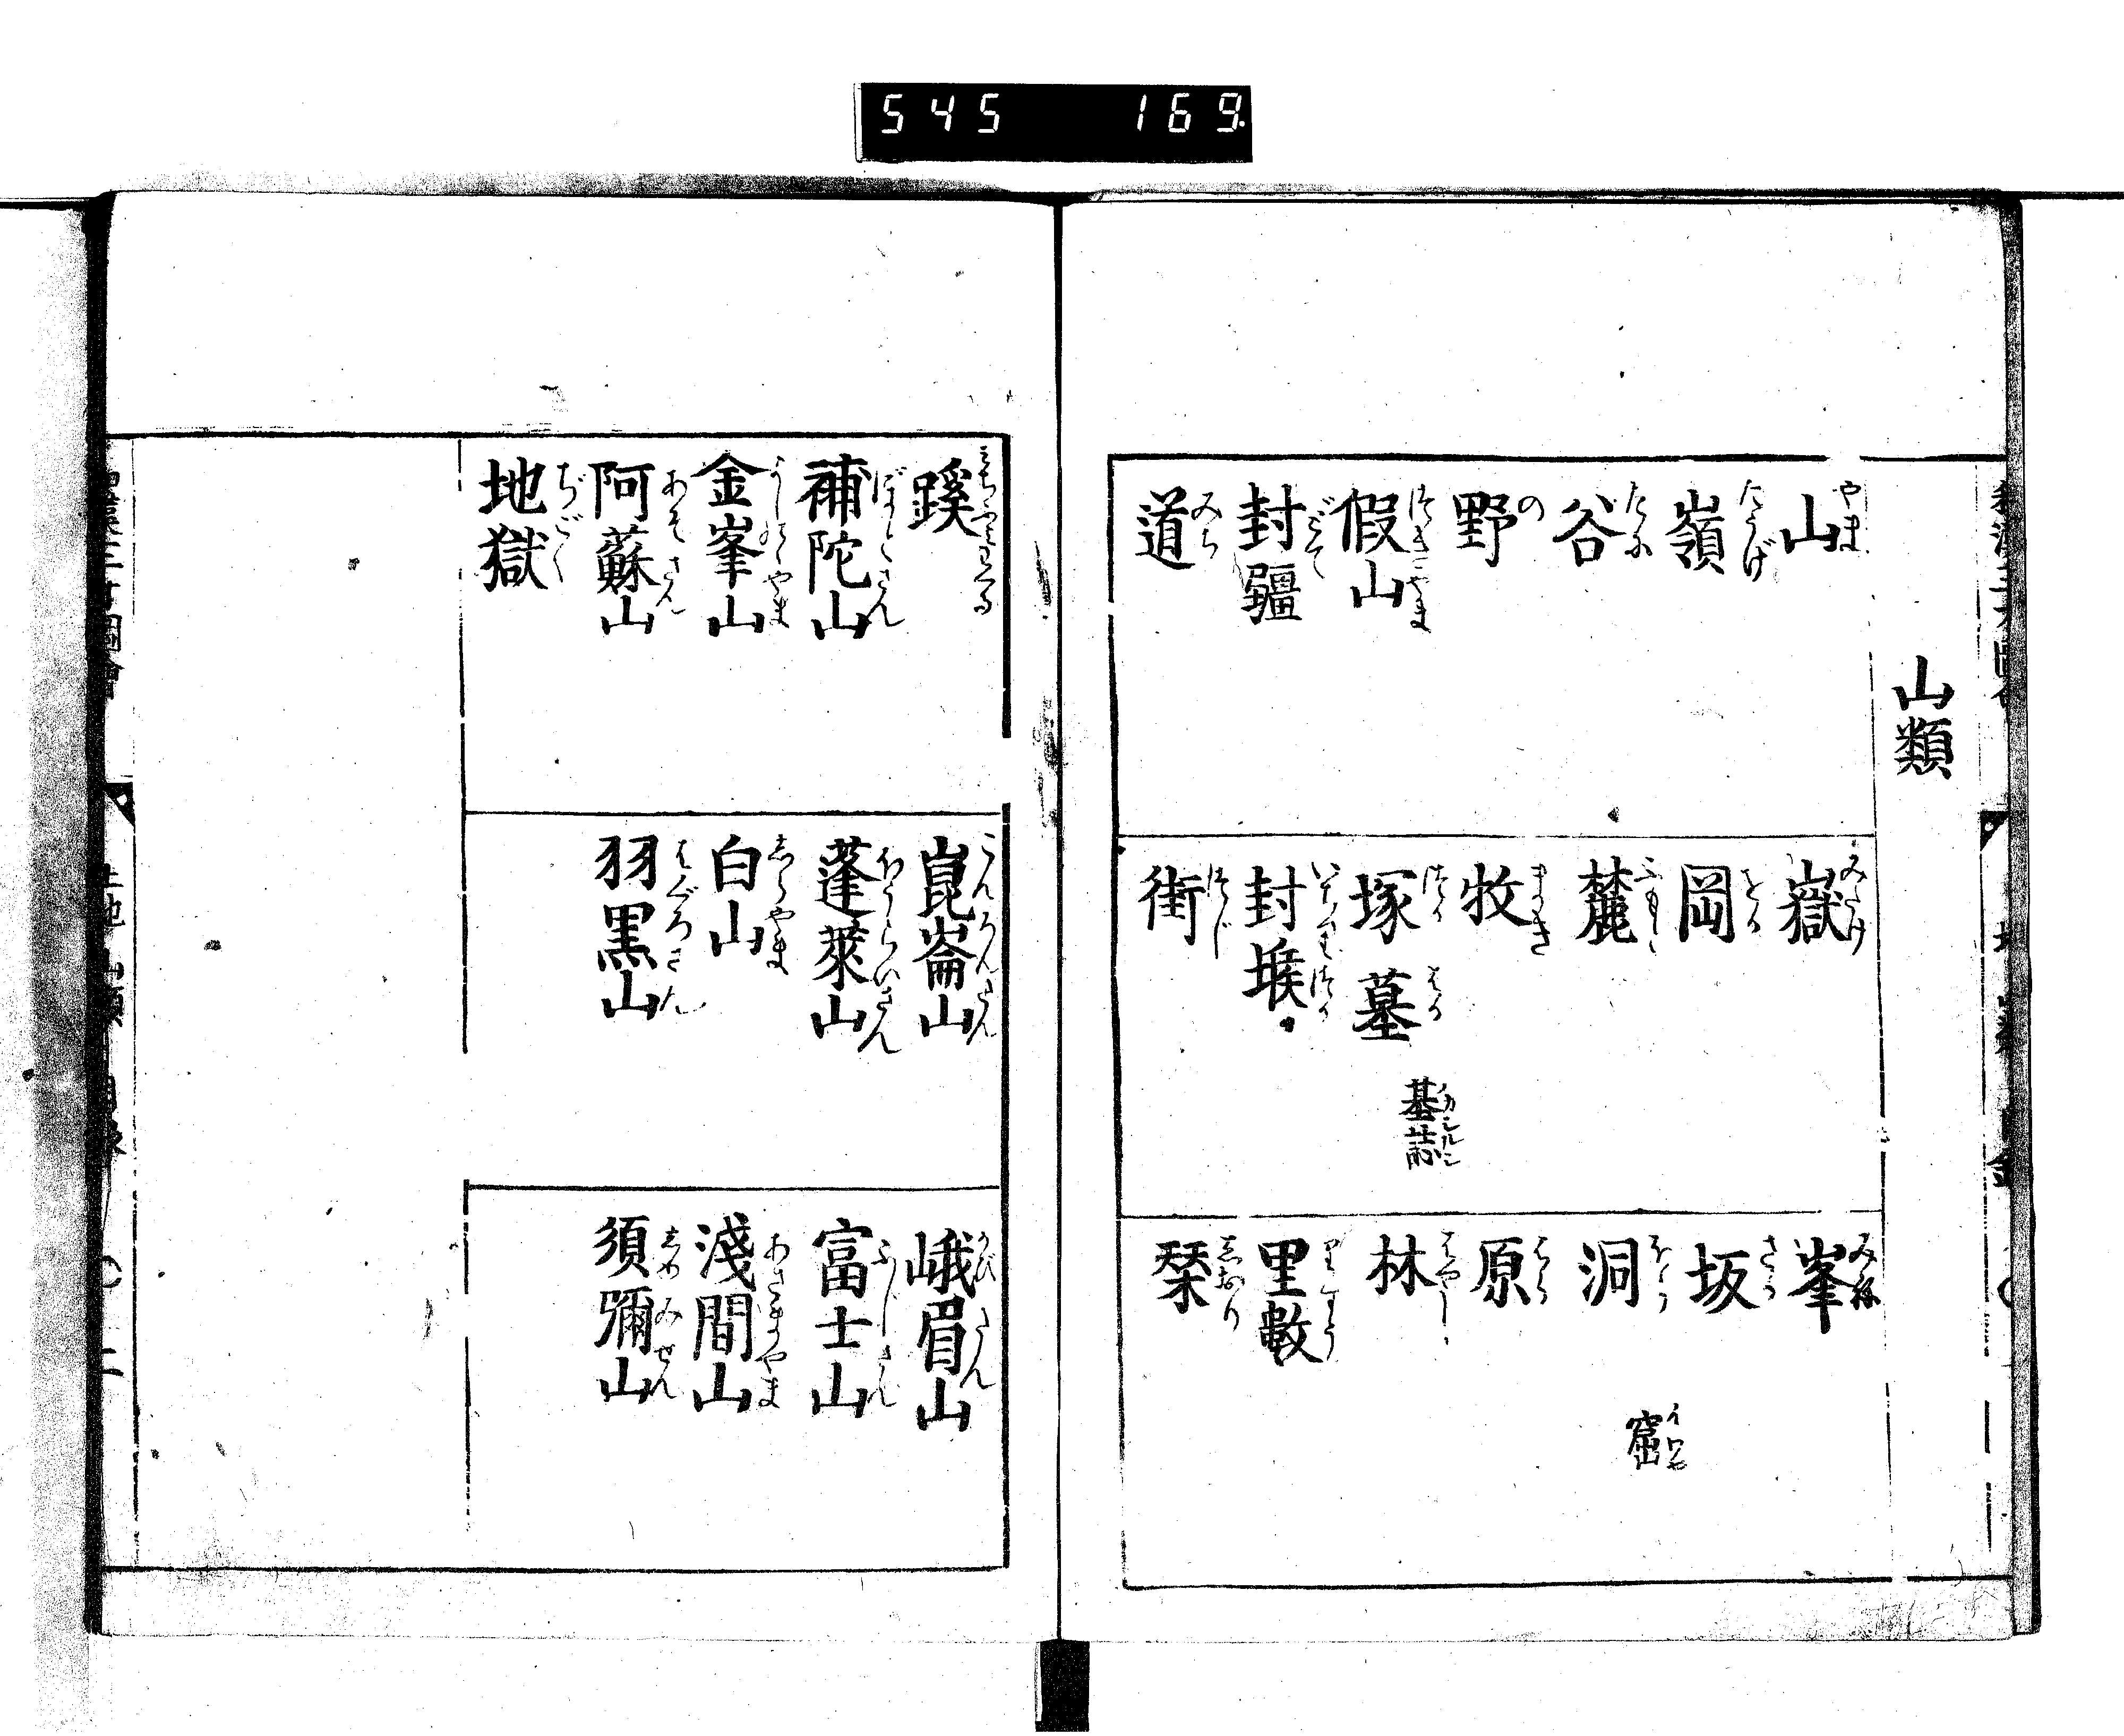 545 169
山類
山 やま
嶺 たうげ
谷 たに
野 の
假山 つきやま
封疆 どて
道 みち
嶽 みたけ
岡 をか
麓 ふもと
牧 まき
塚 つか 墓 はか
墓誌 ハカシルシ
封堠 いちりづか
街 つじ
峯 みね
坂 さか
洞 ほら
窟 イワヤ
原 はら
林 はやし
里數
栞 しおり
蹊
補陀山 ほださん
金峯山
阿蘇山 あそさん
地獄 ぢごく
崑崙山 こんろんさん
蓬萊山 ほうらいさん
白山 しらやま
羽黒山 はぐろさん
峨眉山 がびさん
富士山 ふじさん
淺間山 あさまやま
須彌山 しゆみせん